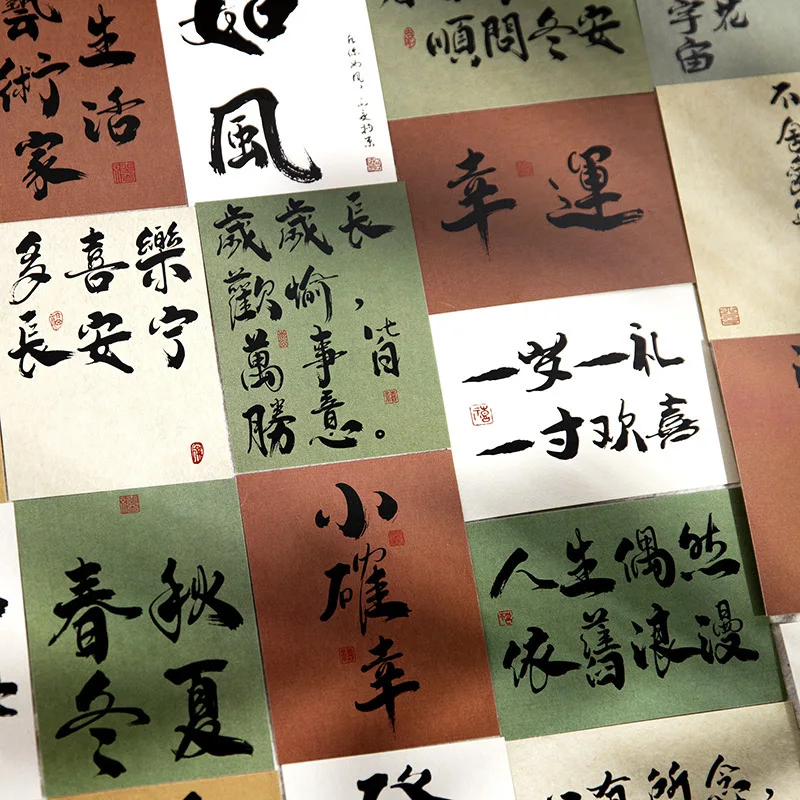 生活
藝術家
如
風
順問冬安
宇宙
花
幸運
多喜樂
長安宁
歲歲長
歡愉，
萬事皆
勝意。
一岁一礼
一寸欢喜
不舍
春秋
冬夏
小
確
幸
人生偶然
依舊浪漫
有所念，